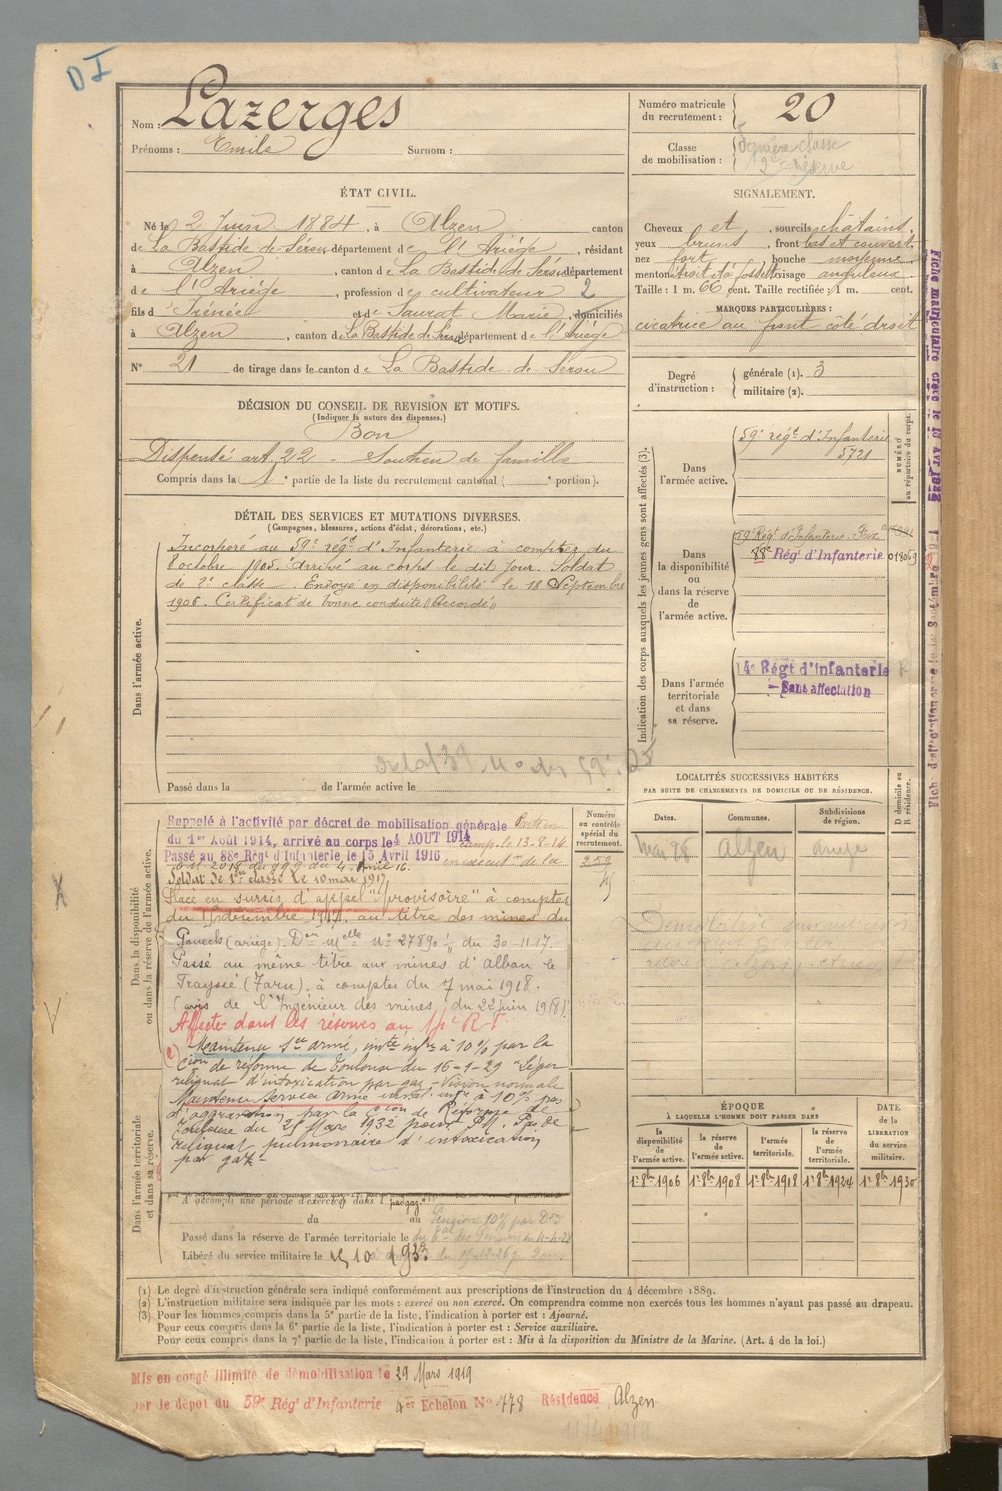 D I
Nom : Lazerges
Prénoms : Emile Surnom :
Numéro matricule du recrutement : 20
Classe de mobilisation : Dernière classe
2e réserve
ÉTAT CIVIL.
Né le 2 Juin 1884, à Alzen canton
de La Bastide de Sérou département de l'Ariège, résidant
à Alzen, canton de La Bastide de Sérou département
de l'Ariège, profession de cultivateur 2
fils d'Irénée et de Saurat Marie, domiciliés
à Alzen, canton de La Bastide de Serou département de l'Ariège
N° 21 de tirage dans le canton de La Bastide de Serou
SIGNALEMENT.
Cheveux et, sourcils châtains
yeux bruns, front bas et couvert
nez fort, bouche moyenne
menton droit et à fossette visage anguleux
Taille : 1 m. 66 cent. Taille rectifiée : 1 m. cent.
MARQUES PARTICULIÈRES :
cicatrice au front côté droit
Degré d'instruction : générale (1). 3
militaire (2).
DÉCISION DU CONSEIL DE REVISION ET MOTIFS.
(Indiquer la nature des dispenses.)
Bon
Dispensé art. 22 - Soutien de famille
Compris dans la 1e partie de la liste du recrutement cantonal ( portion).
DÉTAIL DES SERVICES ET MUTATIONS DIVERSES.
(Campagnes, blessures, actions d'éclat, décorations, etc.)
Dans l'armée active.
Incorporé au 59e régt d'Infanterie à compter du
8 octobre 1905. Arrivé au corps le dit jour. Soldat
de 2e classe. Envoyé en disponibilité le 18 Septembre
1906. Certificat de bonne conduite "Accordé"
Passé dans la de l'armée active le
Indication des corps auxquels les jeunes gens sont affectés (3).
NUMÉRO au répertoire du corps.
Dans l'armée active.
59e régt d'Infanterie
5721
Dans la disponibilité ou dans la réserve de l'armée active.
59e Régt d'Infanterie. Foix
88e Régt d'Infanterie 018069
Dans l'armée territoriale et dans sa réserve.
14e Régt d'infanterie
- Sans affectation
Fiche matriculaire créée le
Dans la disponibilité ou dans la réserve de l'armée active.
Rappelé à l'activité par décret de mobilisation générale
du 1er Août 1914, arrivé au corps le 4 AOUT 1914 camp. le 13-8-14
Passé au 88e Régt d'Infanterie le 15 Avril 1916 en exécution de la
Soldat de 1re classe le 10 mai 1917
Placé en sursis d'appel "provisoire" à compter
du décembre 1917 au titre des mines du
(Ariège). Don Melle no 27890 du 30-11-17.
Passé au même titre aux mines d'Alban le
Fraysse (Tarn). à compter du 7 mai 1918.
(avis de l'Ingénieur des mines du 22 juin 1918).
Affecté dans les réserves au
Maintenu Sce armé, invté infre à 10% par la
Cion de réforme de Toulouse du 16-1-29 "Léger
reliquat d'intoxication par gaz - Vision normale
Maintenu service armé inval. infre à 10% pas
d'aggravation par la Cion de Réforme de
Toulouse du 21 Mars 1932 pour P.M. Pas de
reliquat pulmonaire d'intoxication
par gaz -
Numéro au contrôle spécial du recrutement.
259
Dans l'armée territoriale et dans sa réserve.
A accompli une période d'exercices dans l
du au
Passé dans la réserve de l'armée territoriale le
Libéré du service militaire le 15 10 1933
LOCALITÉS SUCCESSIVES HABITÉES
PAR SUITE DE CHANGEMENTS DE DOMICILE OU DE RÉSIDENCE.
Dates. Communes. Subdivisions de région. D. domicile ou R. résidence.
Mai 28 Alzen Ariège
ÉPOQUE
À LAQUELLE L'HOMME DOIT PASSER DANS
la disponibilité de l'armée active. la réserve de l'armée active. l'armée territoriale. la réserve de l'armée territoriale.
DATE de la LIBÉRATION du service militaire.
1er 8bre 1906 1er 8bre 1908 1er 8bre 1918 1er 8bre 1924 1er 8bre 1930
(1) Le degré d'instruction générale sera indiqué conformément aux prescriptions de l'instruction du 4 décembre 1889.
(2) L'instruction militaire sera indiquée par les mots : exercé ou non exercé. On comprendra comme non exercés tous les hommes n'ayant pas passé au drapeau.
(3) Pour les hommes compris dans la 5e partie de la liste, l'indication à porter est : Ajourné.
Pour ceux compris dans la 6e partie de la liste, l'indication à porter est : Service auxiliaire.
Pour ceux compris dans la 7e partie de la liste, l'indication à porter est : Mis à la disposition du Ministre de la Marine. (Art. 4 de la loi.)
Mis en congé illimité de démobilisation le 29 Mars 1919
par le dépôt du 59e Régt d'Infanterie 4er Echelon No 778 Résidence Alzen